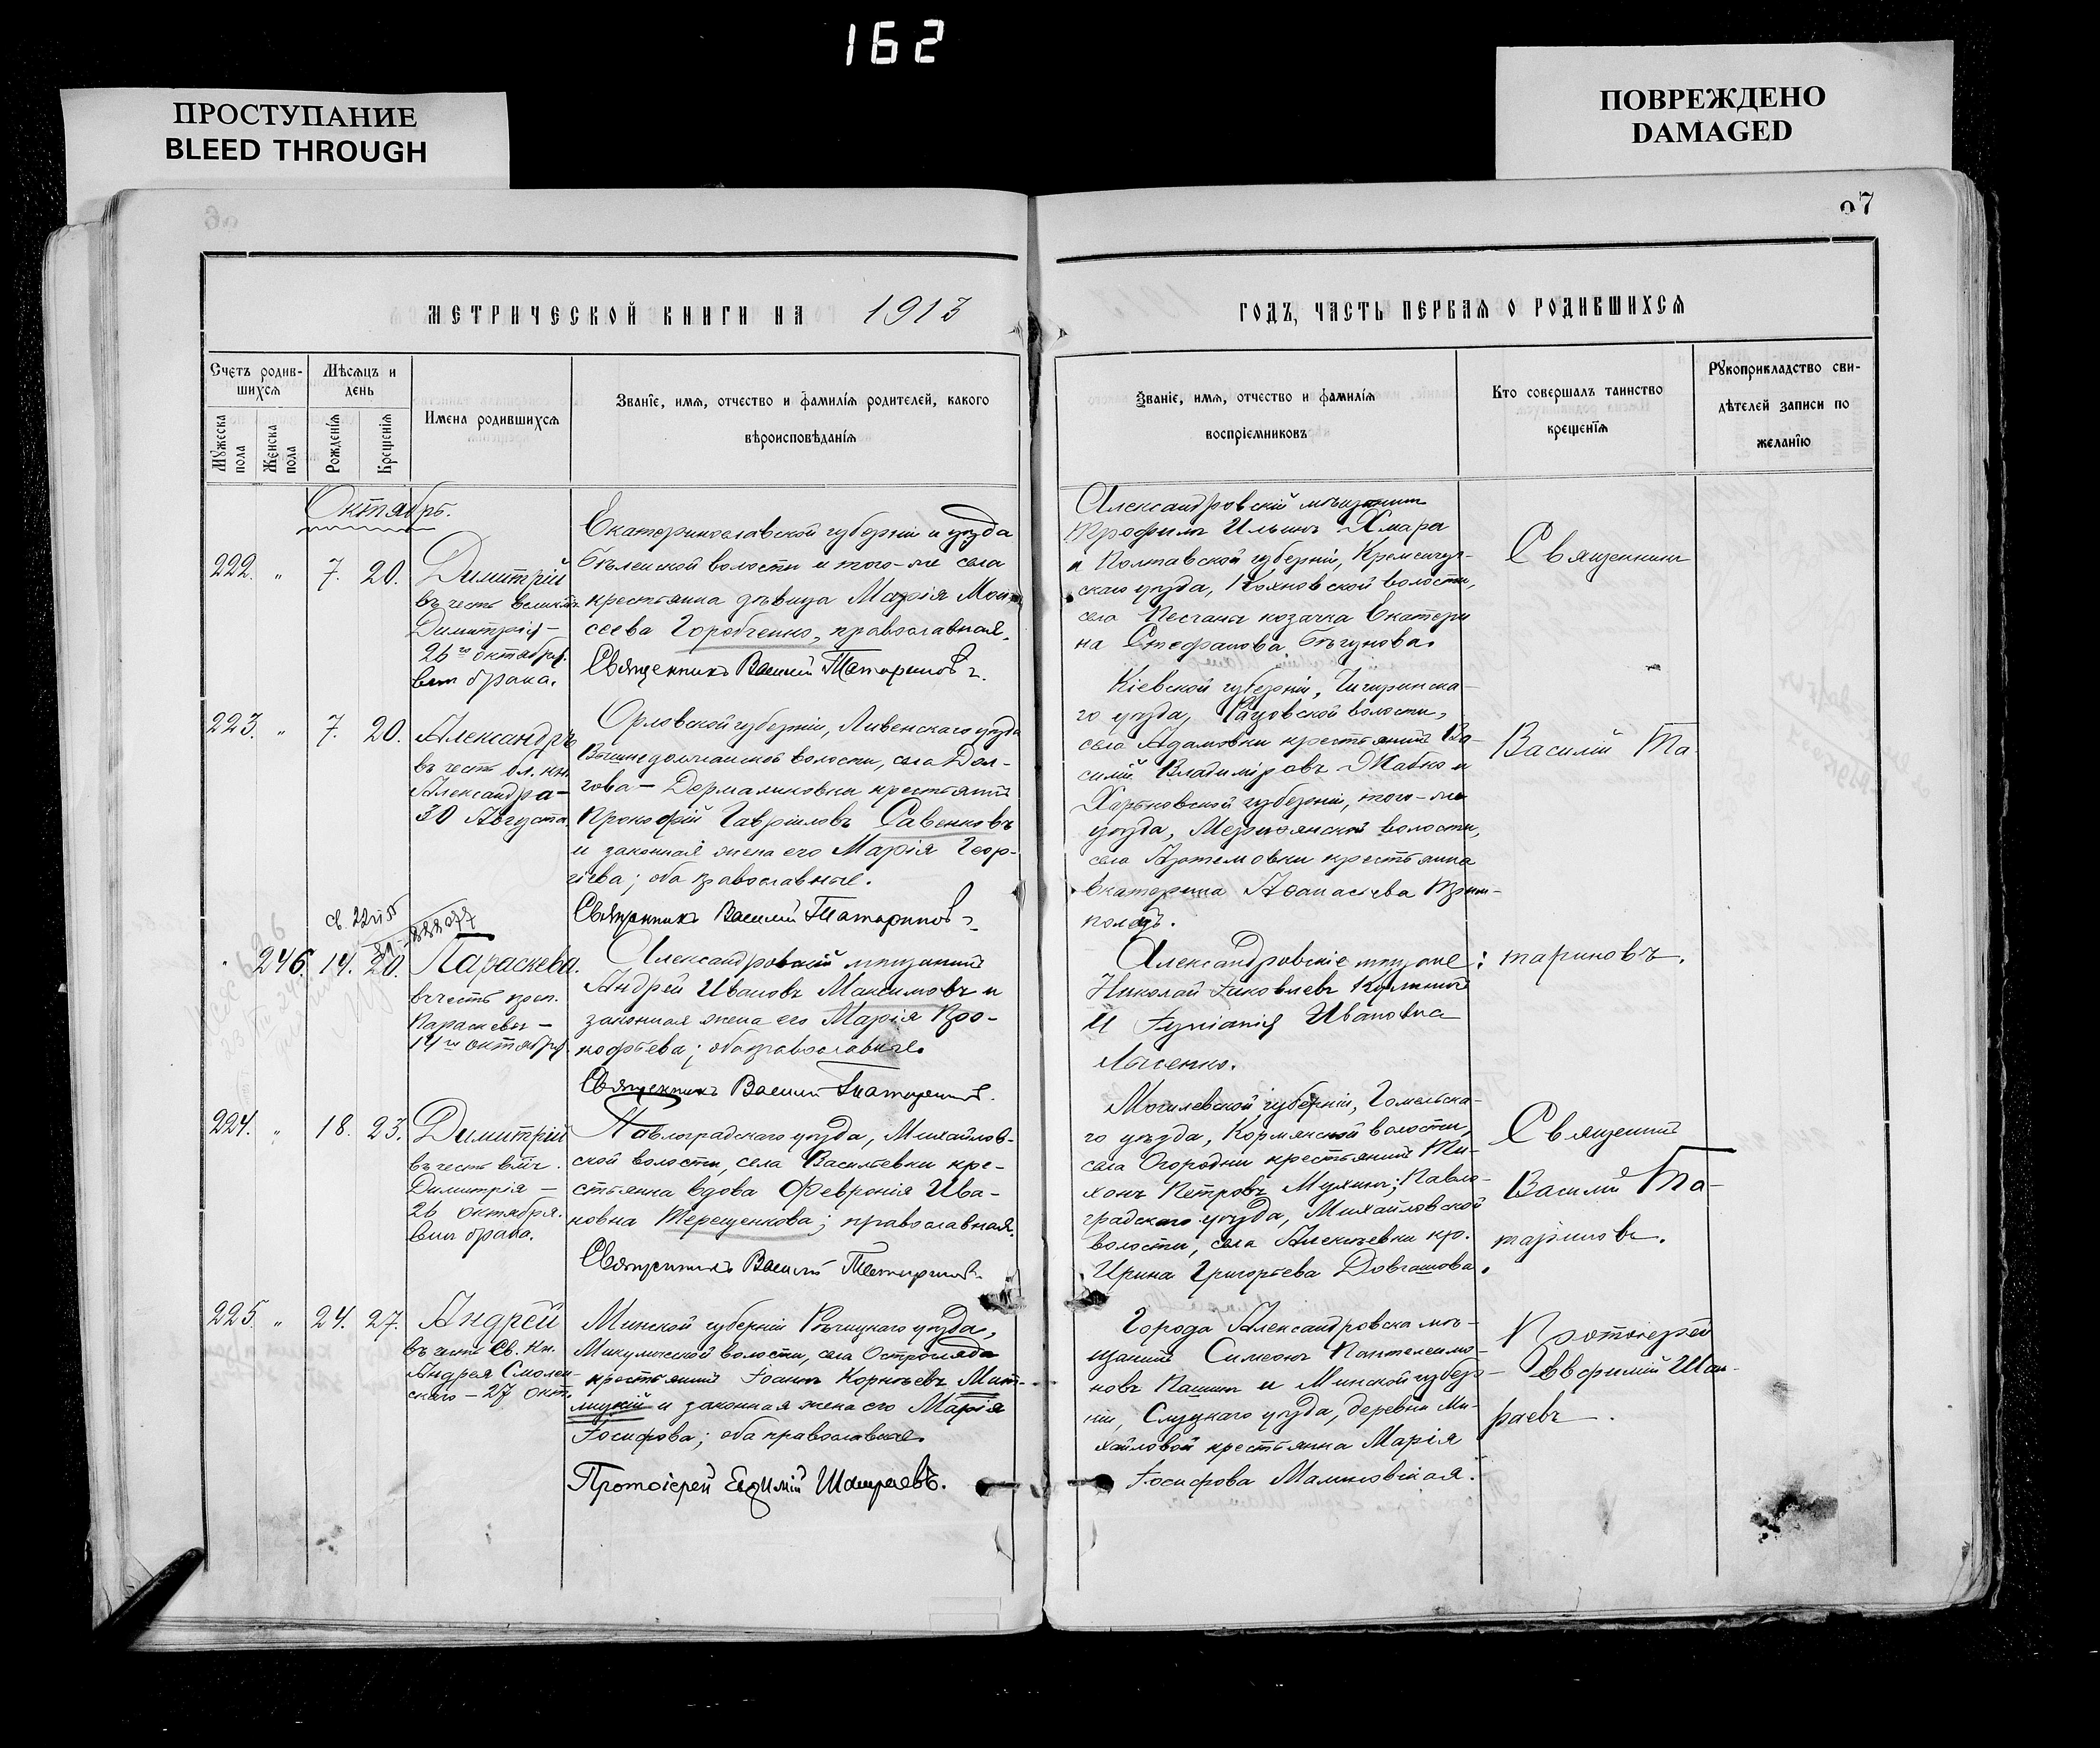 162
ПРОСТУПАНИЕ
BLEED THROUGH
ПОВРЕЖДЕНО
DAMAGED
97
МЕТРИЧЕСКОЙ КНИГИ НА 1913
ГОДЪ, ЧАСТЬ ПЕРВАЯ О РОДИВШИХСЯ
Счетъ родив-
шихся
Мужеска
пола
Женска
пола
Мѣсяцъ и
день
Рожденія
Крещенія
Имена родившихся
Званіе, имя, отчество и фамилія родителей, какого
вѣроисповѣданія
Званіе, имя, отчество и фамилія
воспріемниковъ
Кто совершалъ таинство
крещенія
Рукоприкладство сви-
дѣтелей записи по
желанію
Октябрь.
222. " 7. 20.
Димитрій
въ честь великом.
Димитрія —
26го октября.
внѣ брака.
Екатеринославской губерніи и уѣзда
волости и того-же села
крестьянка дѣвица Марія Мои-
сеева Горобченко, православная.
Священникъ Василій Татариновъ.
Александровскій мѣщанинъ
Трофимъ Ильинъ Хмара
и Полтавской губерніи, Кременчуг-
скаго уѣзда, Кохновской волости,
села Песчана козачка Екатери
на Стефанова Бѣгунова.
Священникъ
223. " 7. 20.
Александръ
въ честь бл. кн.
Александра —
30 Августа.
Орловской губерніи, Ливенскаго уѣзда
волости, села Дол-
гова — крестьянинъ
Прокофій Гавріиловъ Савенковъ
и законная жена его Марія Геор-
гіева; оба православные.
Священникъ Василій Татариновъ.
Кіевской губерніи, Чигиринска-
го уѣзда, волости,
села Адамовки крестьянинъ Ва-
силій Владиміровъ Жабко и
Харьковской губерніи, того-же
уѣзда, Мерефянской волости,
села Артемовки крестьянка
Екатерина Аѳанасіева
Василій Та-
св. 22 VII 55
246. 14. 20.
Параскева.
въ честь преп.
Параскевы —
14го октября.
Александровскій мѣщанинъ
Андрей Ивановъ Максимовъ и
законная жена его Марія Про-
кофьева; оба православные.
Священникъ Василій Татариновъ.
Александровскіе мѣщане:
Николай Яковлевъ
и Іуліанія Ивановна
Лысенко.
тариновъ.
224. " 18. 23.
Димитрій
въ честь влмч.
Димитрія —
26 октября.
внѣ брака.
Павлоградскаго уѣзда, Михайлов-
ской волости, села Васильевки кре-
стьянка вдова Февронія Ива-
новна Терещенкова; православная.
Священникъ Василій Татариновъ.
Могилевской губерніи, Гомельска-
го уѣзда, Кормянской волости,
села Огородни крестьянинъ Ти-
хонъ Петровъ Павло-
градскаго уѣзда, Михайловской
волости, села Алексѣевки кр.
Ирина Григорьева Довгашова.
Священникъ
Василій Та-
тариновъ.
225. " 24. 27.
Андрей
въ честь Св. Кн.
Андрея Смолен-
скаго — 27 окт.
Минской губерніи Рѣчицкаго уѣзда,
Микуличской волости, села Остроглядо
крестьянинъ Іоаннъ Корнѣевъ Мит-
лицкій и законная жена его Марія
Іосифова; оба православные.
Протоіерей Евфимій Шапраевъ.
Города Александровска мѣ-
щанинъ Симеонъ Пантелеимо-
новъ Пашинъ и Минской губер-
ніи, Слуцкаго уѣзда, деревни Ми-
хайловой крестьянка Марія
Іосифова Малиновская.
Протоіерей
Евфимій Шап-
раевъ.